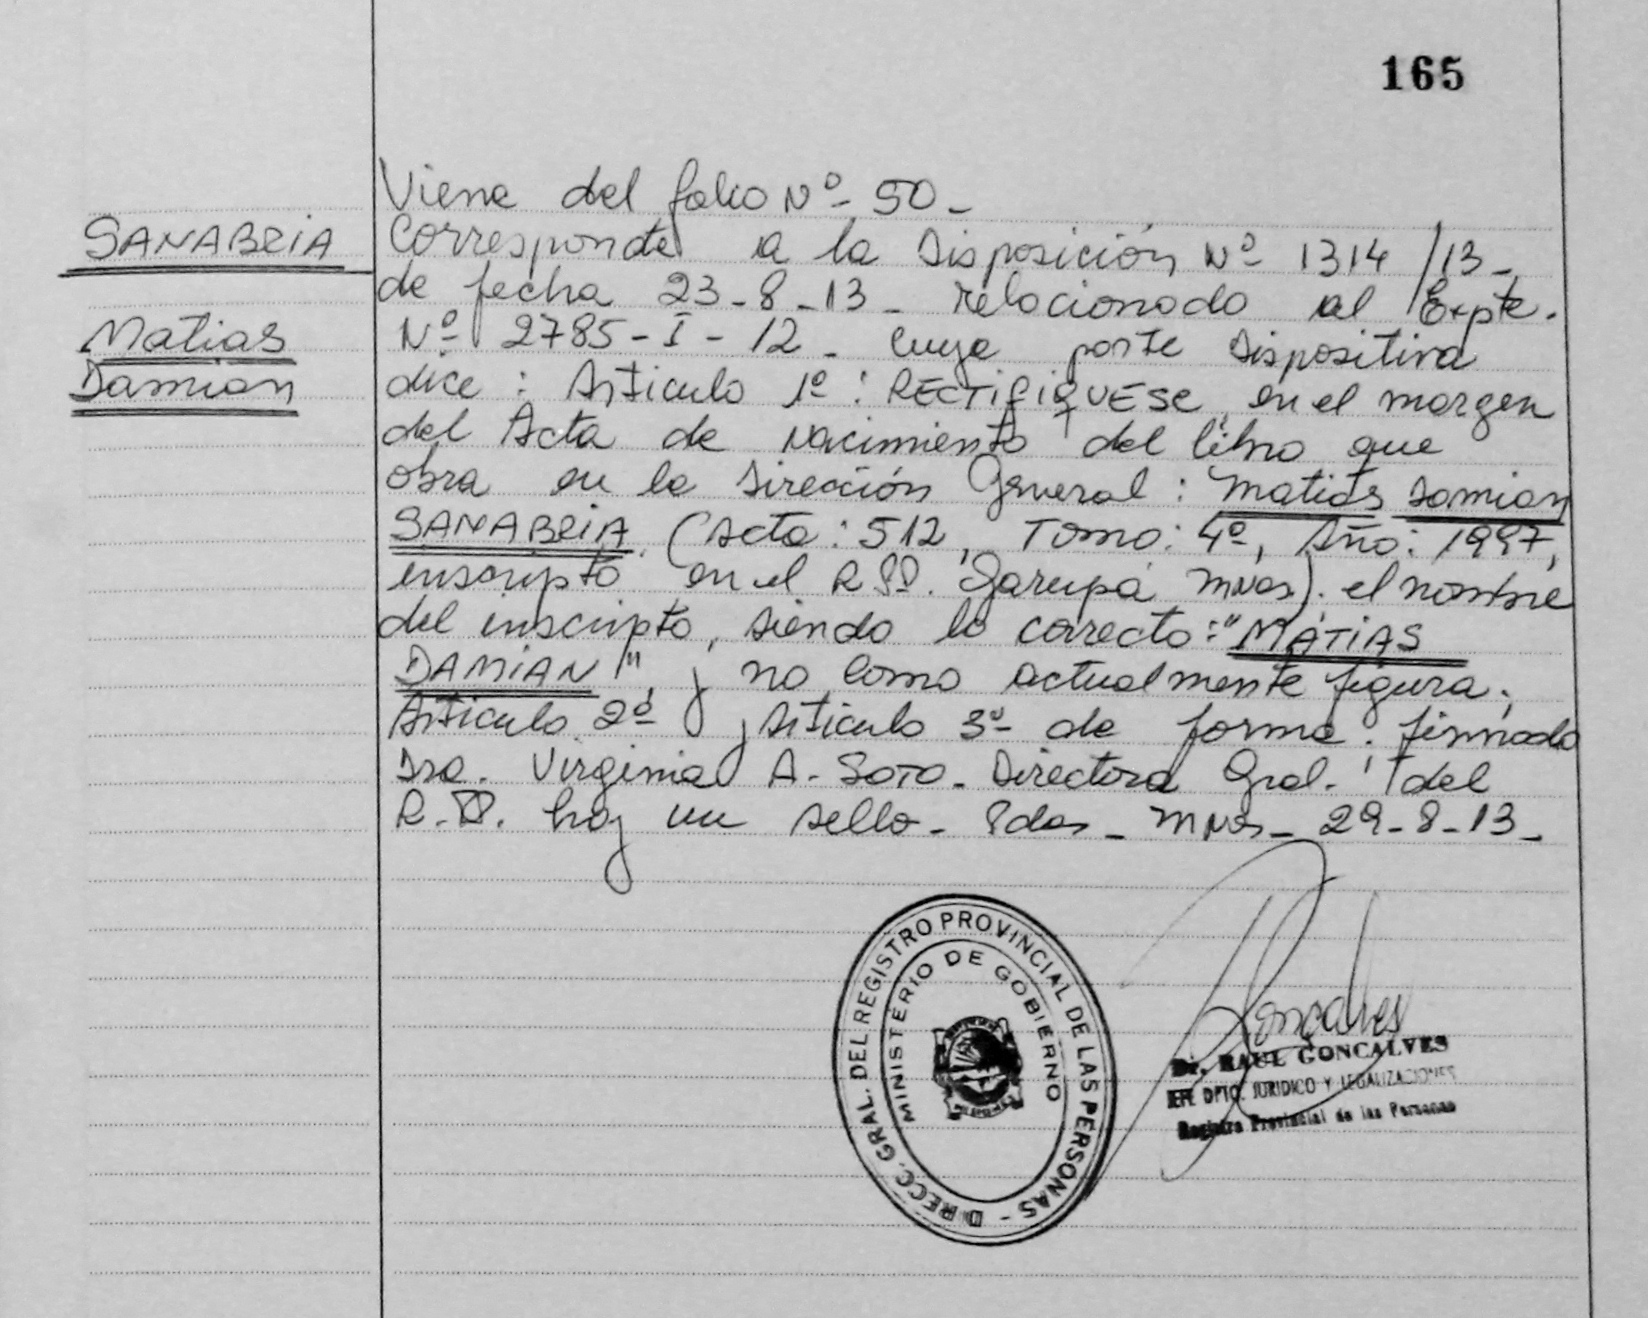 165
Viene del folio Nº 50_
SANABRIA
Corresponde a la Disposición Nº 1314/13_
de fecha 23-8-13_ relacionado al Expte.
Matias
Nº 2785-I-12_ cuya parte Dispositiva
Damian
dice: Articulo 1º: RECTIFIQUESE, en el margen
del Acta de Nacimiento del libro que
obra en la Dirección General: Matias Damian
SANABRIA. (Acta: 512, Tomo: 4º, Año: 1997,
inscripto en el R.P.P. Garupá Mnes). el nombre
del inscripto, siendo lo correcto: "MATIAS
DAMIAN" y no como actualmente figura.
Articulo 2º y Articulo 3º de forma. firmado
Dra. Virginia A. SOTO_ Directora Gral. del
R.P. hay un sello_ Pdas_ Mnes_ 29-8-13_
DIRECC. GRAL. DEL REGISTRO PROVINCIAL DE LAS PERSONAS -
MINISTERIO DE GOBIERNO
MISIONES
Goncalves
Dr. RAUL GONCALVES
JEFE DPTO. JURIDICO Y LEGALIZACIONES
Registro Provincial de las Personas